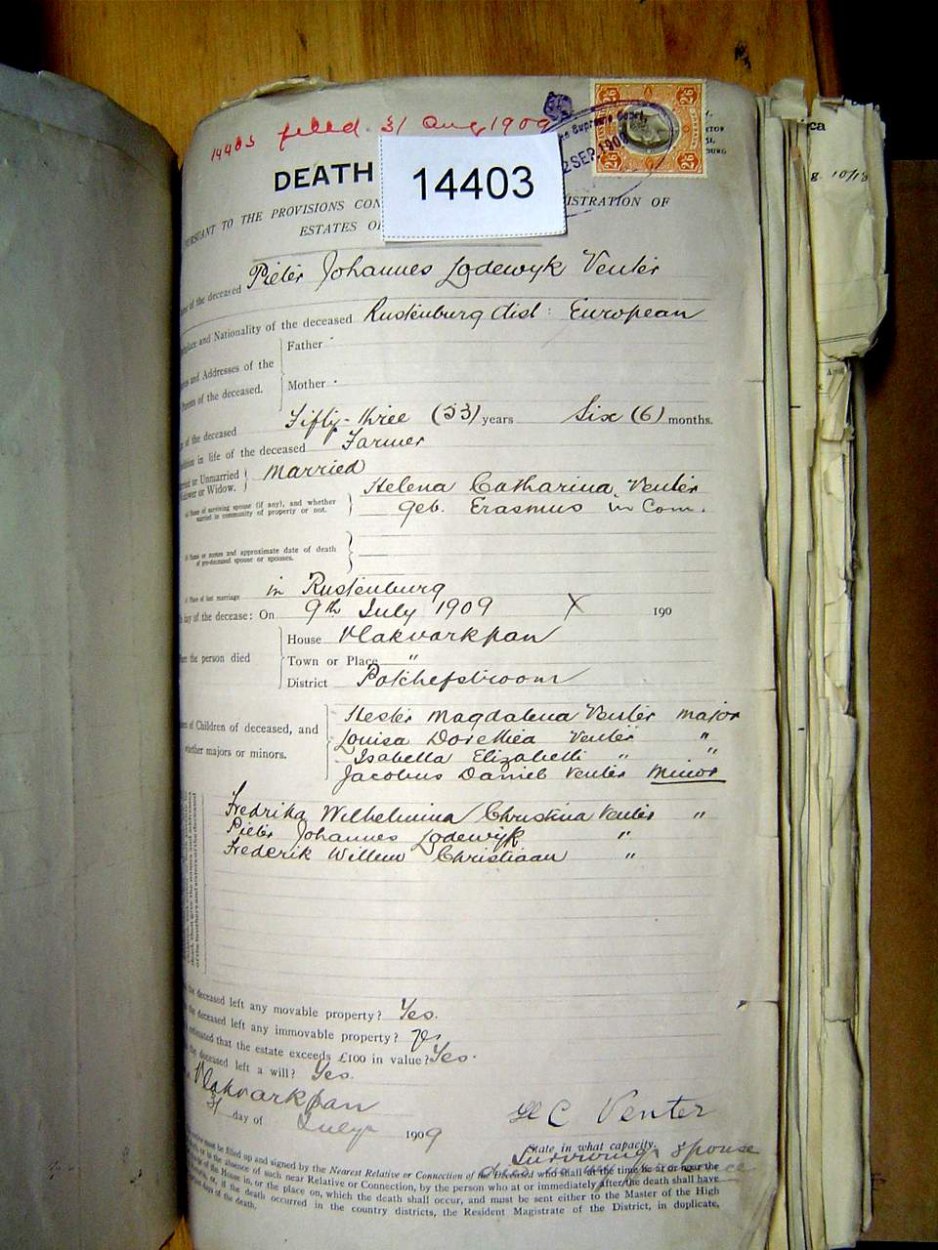 14403 filed. 31 Aug 1909
2/6 2/6
Supreme Court
2 SEP. 1909
2/6 2/6
14403
DEATH
PURSUANT TO THE PROVISIONS CON ISTRATION OF
ESTATES O
me of the deceased Pieter Johannes Lodewyk Venter
hplace and Nationality of the deceased Rustenburg dist: European
es and Addresses of the Parents of the deceased.
Father
Mother
of the deceased Fifty-three (53) years Six (6) months.
dition in life of the deceased Farmer
Married or Unmarried Widower or Widow. Married
Name of surviving spouse (if any), and whether married in community of property or not.
Helena Catharina Venter
geb. Erasmus in Com.
Name or names and approximate date of death of pre-deceased spouse or spouses.
Place of last marriage in Rustenburg
day of the decease: On 9th July 1909 X 190
ere the person died
House Vlakvarkpan
Town or Place "
District Potchefstroom
es of Children of deceased, and whether majors or minors.
Hester Magdalena Venter major
Louisa Dorethea Venter "
Isabella Elizabeth " "
Jacobus Daniel Venter Minor
Fredrika Wilhelmina Christina Venter "
Pieter Johannes Lodewijk "
Frederik Willem Christiaan "
the deceased left any movable property? Yes.
the deceased left any immovable property?
estimated that the estate exceeds £100 in value? Yes.
the deceased left a will? Yes.
Vlakvarkpan
31 day of July 1909
H C Venter
State in what capacity.
Surviving Spouse
must be filled up and signed by the Nearest Relative or Connection of the Deceased who shall at the time be at or near the
in the absence of such near Relative or Connection, by the person who at or immediately after the death shall have
of the House in, or the place on, which the death shall occur, and must be sent either to the Master of the High
or, if the death occurred in the country districts, the Resident Magistrate of the District, in duplicate,
days of the death.